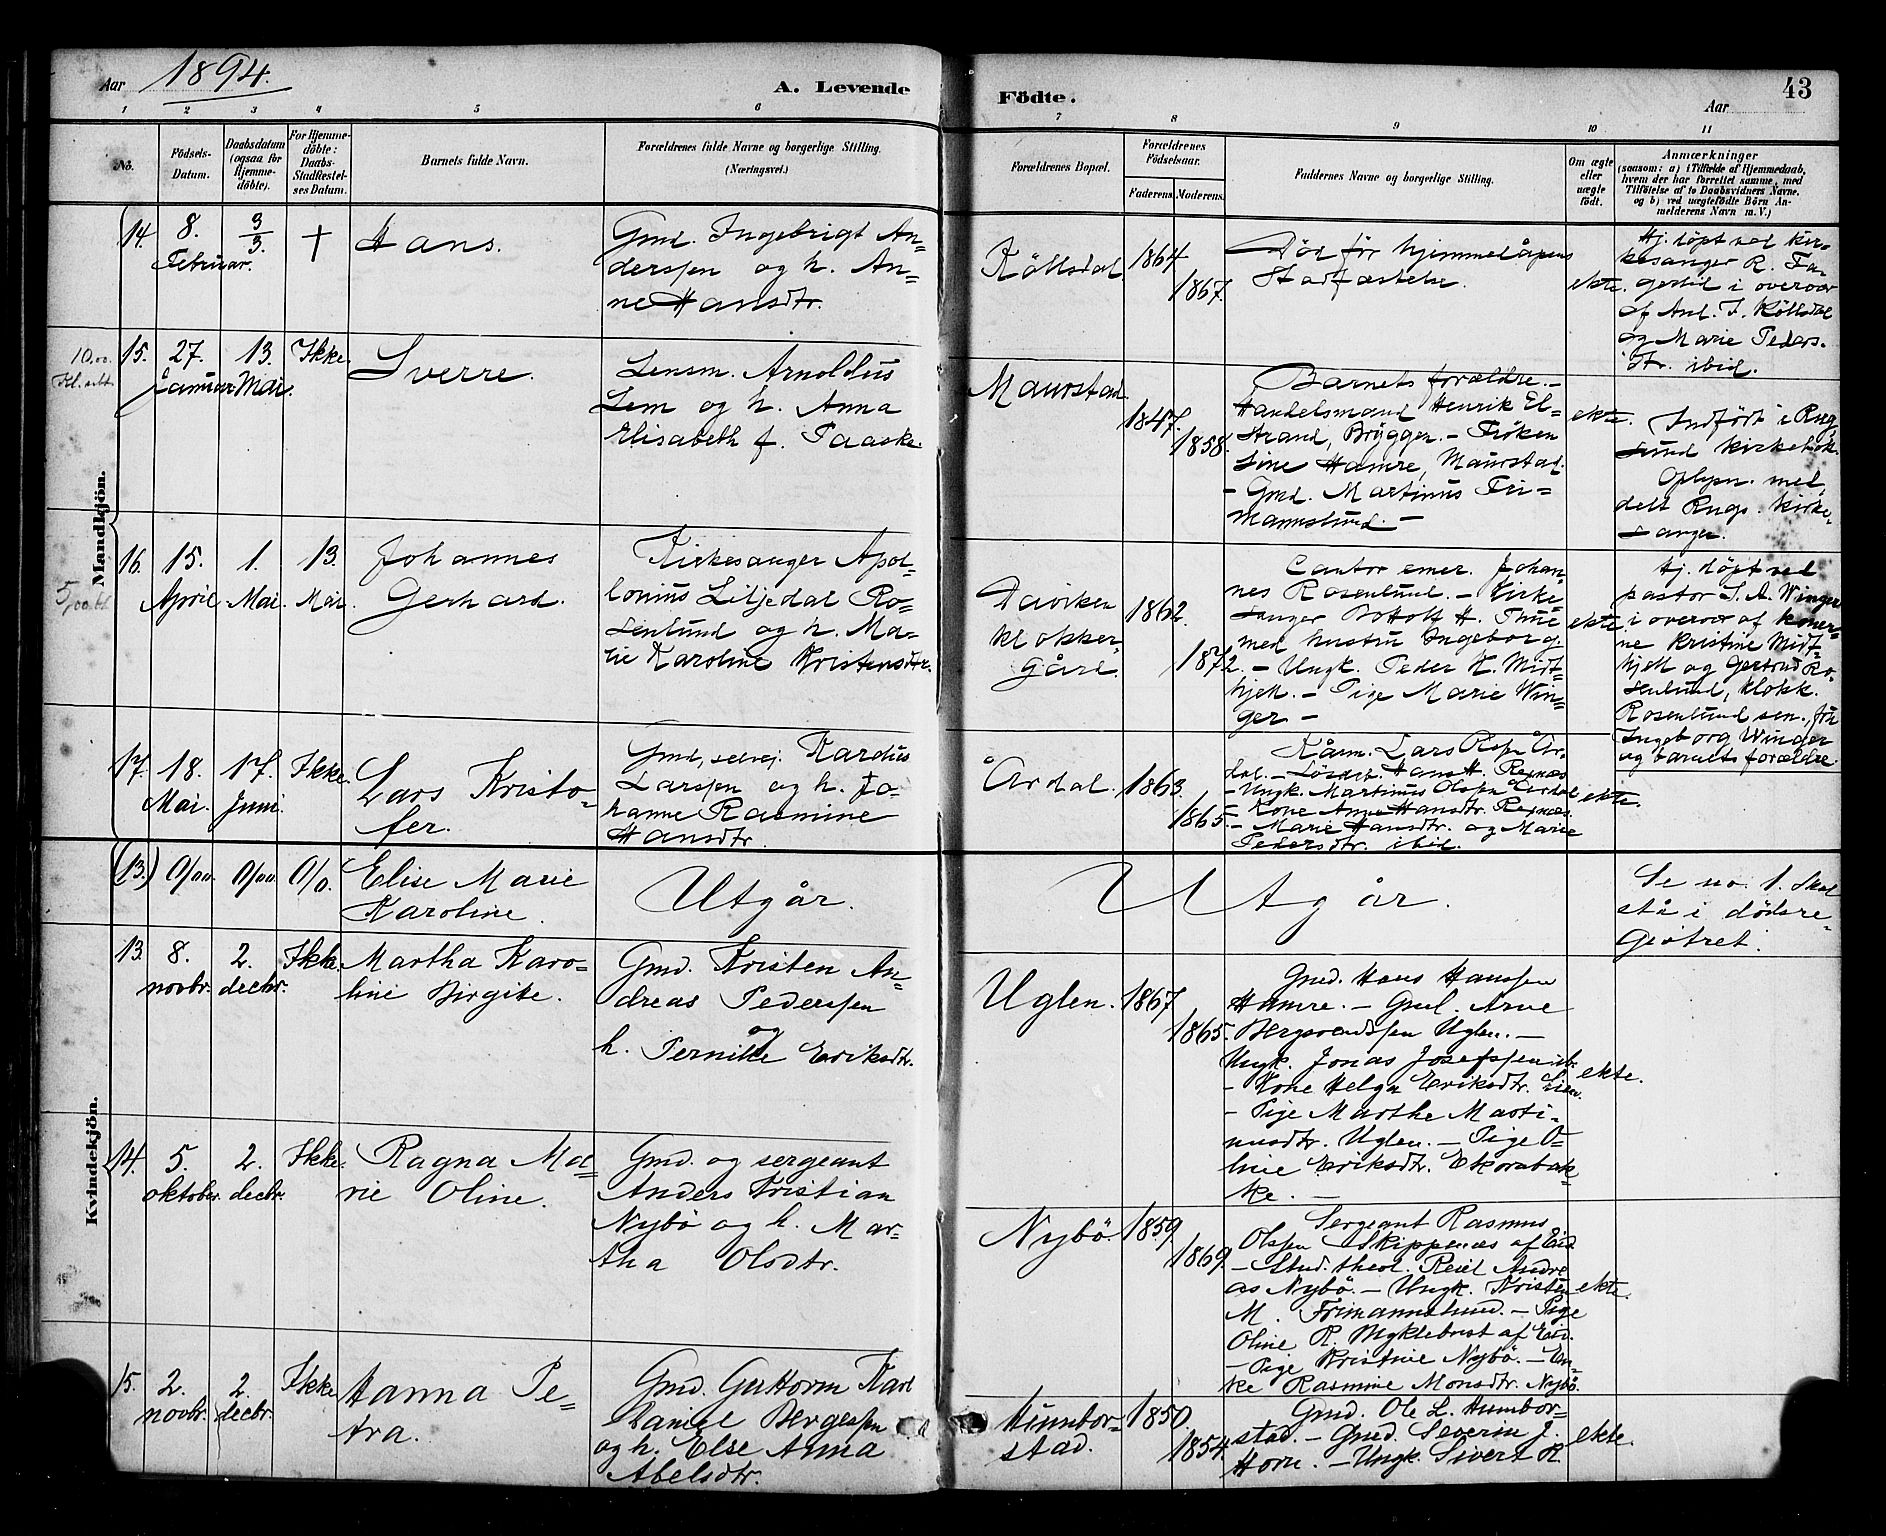 Aar 1894.
A. Levende
Födte.
Aar
43
1 2 3 4 5 6 7 8 9 10 11
No.
Födsels-
Datum.
Daabsdatum
(ogsaa for
Hjemme-
döbte).
For Hjemme-
döbte:
Daabs-
Stadfæstel-
ses Datum.
Barnets fulde Navn.
Forældrenes fulde Navne og borgerlige Stilling.
(Næringsvei.)
Forældrenes Bopæl.
Forældrenes
Födselsaar.
Faderens.
Moderens.
Faddernes Navne og borgerlige Stilling.
Om ægte
eller
uægte
födt.
Anmærkninger
(saasom: a) i Tilfælde af Hjemmedaab,
hvem der har forrettet samme, med
Tilföielse af to Daabsvidners Navne,
og b) ved uægtefödte Börn An-
melderens Navn m. V.)
Mandkjön.
14.
8.
Februar.
3/3.
†
Hans.
Gmd. Ingebrigt An-
derssen og h. An-
ne Hansdtr.
Köllsdal
1864
1867.
Död för hjemmedåpens
Stadfæstelse.
ekte.
Hj. döpt ved kir-
kesanger R. Fa-
gerlid i overvær
af And. J. Köllsdal
og Marie Peders-
dtr. ibid.
10.00
15.
27.
Januar
13.
Mai.
Ikke.
Sverre.
Lensm. Arnoldus
Lem og h. Anna
Elisabeth f. Paaske.
Maurstad.
1847.
1858.
Barnets forældre. -
Handelsmand Henrik El-
strand, Bryggen. - Fröken
Line Hamre, Maurstad.
- Gmd. Martinus Fri-
mannslund. -
ekte.
Indfört i Rug-
sund kirkebok.
Oplysn. med-
delt Rugs. kirke-
sanger.
16.
15.
April
1.
Mai.
13.
Mai.
Johannes
Gerhard.
Kirkesanger Apol-
lonius Liljedal Ro-
senlund og h. Ma-
lie Karoline Kristensdtr.
Daviken
klokker-
gård.
1862.
1872.
Cantor emer. Johan-
nes Rosenlund. - Kirke-
sanger Bottolf H. Thue
med hustru Ingeborg
- Ungk. Peder K. Midt-
hjell. - Pige Marie Win-
ger -
ekte
Hj. döpt ved
pastor S. A. Winger
i overvær af koner-
ne Kristine Midt-
hjell og Gertrud Ro-
senlund, klokk.
Rosenlund sen., frk
Ingeborg Winger
og barnets forældre.
17.
18.
Mai.
17.
Juni.
Ikke.
Lars Kristo-
fer.
Gmd, selvej. Kardus
Larssen og h. Jo-
hanne Rasmine
Hansdtr.
Årdal.
1863.
1865.
Kårm. Lars Olsen År-
dal. - Hans H. Rejnæs
- Ungk. Martinus Olsen Årdal
- Kone Anne Hansdtr. Rejnæs.
- Marie Hansdtr. og Marie
Pedersdtr. ibid.
ekte.
Kvindekjön.
(13.)
0/00.
0/00.
0/0.
Elise Marie
Karoline.
Utgår.
Utgår.
Se no. 1. Skal
stå i dödsre-
gistret.
13.
8.
novbr.
2.
decbr.
Ikke.
Martha Karo-
line Birgite.
Gmd. Kristen An-
dreas Pederssen
og
h. Pernille Eriksdtr.
Uglen.
1867
1865.
Gmd. Hans Hanssen
Hamre. - Gmd. Arne
Bergsvendssen Uglen. -
Ungk. Jonas Josefssen ib.
- Kone Helga Eriksdtr. Lien.
- Pige Marthe Marti-
nusdtr. Uglen. - Pige O-
line Eriksdtr. Ekorabak-
ke. -
ekte.
14.
5.
oktober.
2.
decbr.
Ikke.
Ragna Ma-
rie Oline.
Gmd. og sergeant
Anders Kristian
Nybö og h. Mar-
tha Olsdtr.
Nybö.
1859
1869.
Sergeant Rasmus
Olssen Skippenæs af Eid
- Stud. theol. Andre-
as Nybö. - Ungk. Kristen
M. Frimannslund. - Pige
Oline R. Myklebust af Eid.
- Pige Kristine Nybö. - En-
ke Rasmine Monsdtr. Nybö.
ekte.
15.
2.
novbr.
2.
decbr.
Ikke
Hanna Pe-
tra.
Gmd. Guttorm Karl
Daniel Bergessen
og h. Else Anna
Abelsdtr.
Humbor-
stad.
1850.
1854.
Gmd. Ole L. Humbor-
stad. - Gmd. Severin J.
Horn. - Ungk. Sivert R.
ekte.